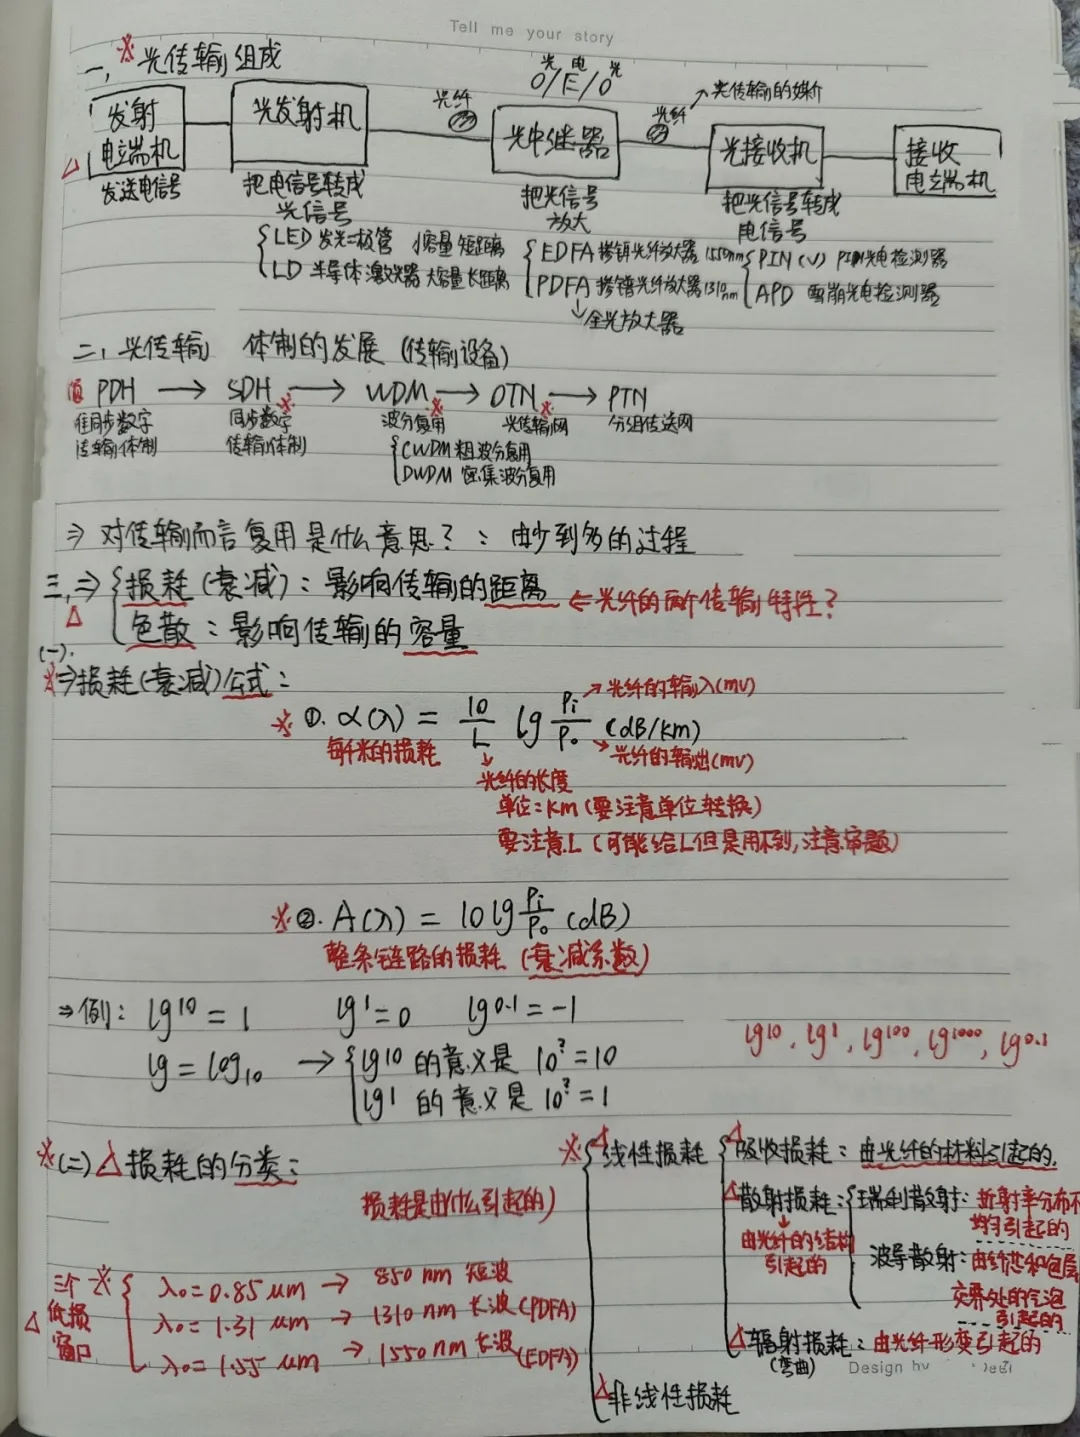 Tell me your story
一、※光传输组成
光 电 光
O/E/O
光纤
光纤 → 光传输的媒介
发射电端机
光发射机
光中继器
光接收机
接收电端机
△
发送电信号
把电信号转成光信号
把光信号放大
把光信号转成电信号
LED 发光二极管 小容量 短距离
LD 半导体激光器 大容量 长距离
EDFA 掺铒光纤放大器 1550nm
PDFA 掺镨光纤放大器 1310nm
↓全光放大器
PIN (V) PIN光电检测器
APD 雪崩光电检测器
二、光传输 体制的发展 (传输设备)
PDH → SDH※ → WDM※ → OTN※ → PTN
准同步数字传输体制
同步数字传输体制
波分复用
光传输网
分组传送网
CWDM 粗波分复用
DWDM 密集波分复用
⇒ 对传输而言复用是什么意思？：由少到多的过程
三、⇒ 损耗(衰减)：影响传输的距离
⇐ 光纤的两个传输特性？
△
色散：影响传输的容量
(一).
※⇒损耗(衰减)公式：
※ ①. α(λ) = 10/L lg Pi/Po (dB/km)
→光纤的输入(mv)
→光纤的输出(mv)
每千米的损耗
↓光纤的长度
单位=km (要注意单位转换)
要注意L (可能给L但是用不到,注意审题)
※②. A(λ) = 10lg Pi/Po (dB)
整条链路的损耗 (衰减系数)
⇒ 例： lg10 = 1 lg1 = 0 lg0.1 = -1
lg10、lg1、lg100、lg1000、lg0.1
lg = log10 → lg10 的意义是 10^? = 10
lg1 的意义是 10^? = 1
※(二)△损耗的分类：
损耗是由什么引起的)
※ △线性损耗
△吸收损耗：由光纤的材料引起的.
△散射损耗：
↓由光纤的结构引起的
瑞利散射：折射率分布不均匀引起的
波导散射：由纤芯和包层交界处的气泡引起的
△辐射损耗：由光纤形变引起的
(弯曲)
△非线性损耗
三个※
△低损窗口
λ0=0.85 μm → 850 nm 短波
λ0=1.31 μm → 1310 nm 长波(PDFA)
λ0=1.55 μm → 1550 nm 长波(EDFA)
Design by